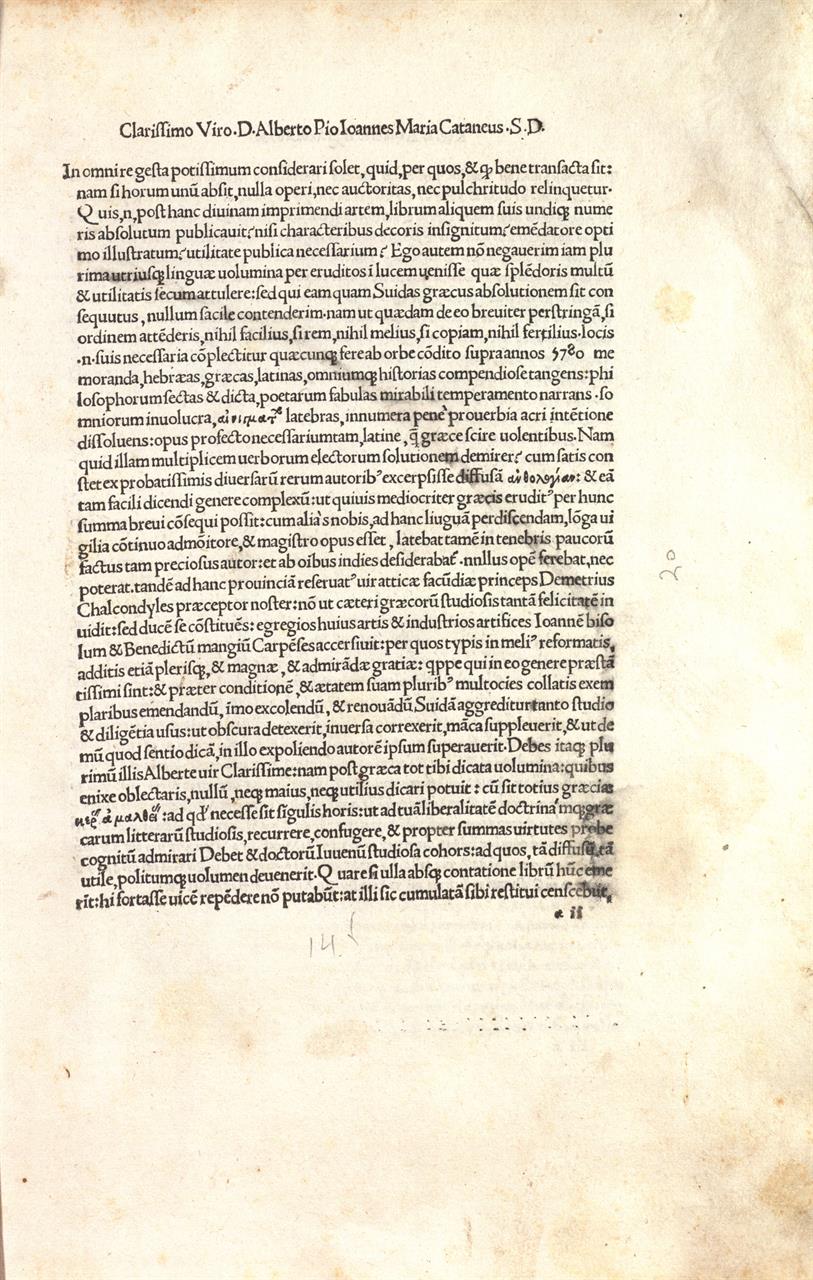 Clarissimo Viro.D.Alberto Pio Ioannes Maria Cataneus .S.D.
In omni re gesta potissimum considerari solet,quid,per quos,& ꝙ bene transacta sit:
nam si horum unū absit,nulla operi,nec auctoritas,nec pulchritudo relinquetur.
Quis,n,post hanc diuinam imprimendi artem,librum aliquem suis undiqꝫ nume
ris absolutum publicauit?nisi characteribus decoris insignitum?emēdatore opti
mo illustratum?utilitate publica necessarium? Ego autem nō negauerim iam plu
rima utriusqꝫ linguæ uolumina per eruditos ī lucem uenisse quæ splēdoris multū
& utilitatis secum attulere:sed qui eam quam Suidas græcus absolutionem sit con
sequutus, nullum facile contenderim.nam ut quædam de eo breuiter perstringā,si
ordinem attēderis,nihil facilius,si rem,nihil melius,si copiam,nihil fertilius.locis
.n.suis necessaria cōplectitur quæcunqꝫ fere ab orbe cōdito supra annos 5780 me
moranda,hebræas,græcas,latinas,omniumqꝫ historias compendiose tangens:phi
losophorum sectas & dicta,poetarum fabulas mirabili temperamento narrans .so
mniorum inuolucra, latebras,innumera pene prouerbia acri intētione
dissoluens:opus profecto necessarium tam,latine,q̄ græce scire uolentibus.Nam
quid illam multiplicem uerborum electorum solutionem demirer? cum satis con
stet ex probatissimis diuersarū rerum autoribꝰ excerpsisse diffusā ἀνθολογίαν: & eā
tam facili dicendi genere complexū:ut quiuis mediocriter græcis eruditꝰ per hunc
summa breui cōsequi possit:cum alias nobis,ad hanc liuguam perdiscendam,lōga ui
gilia cōtinuo admōitore,& magistro opus esset, latebat tamē in tenebris paucorū
factus tam preciosus autor:et ab oībus indies desiderabat̄.nnllus opē ferebat,nec
poterat.tandē ad hanc prouinciā reseruatꝰ uir atticæ facūdiæ princeps Demetrius
Chalcondyles præceptor noster:nō ut cæteri græcorū studiosis tantā felicitatē in
uidit:sed ducē se cōstituēs: egregios huius artis & industrios artifices Ioannē biso
lum & Benedictū mangiū Carpēses accersiuit:per quos typis in meliꝰ reformatis,
additis etiā plerisqꝫ,& magnæ,& admirādæ gratiæ: qppe qui in eo genere præstā
tissimi sint:& præter conditionē,& ætatem suam pluribꝰ multocies collatis exem
plaribus emendandū,īmo excolendū,& renouādū Suidā aggreditur tanto studio
& diligētia usus:ut obscura detexerit,inuersa correxerit,māca suppleuerit,& ut de
mū quod sentio dicā,in illo expoliendo autorē ipsum superauerit.Debes itaqꝫ plu
rimū illis Alberte uir Clarissime:nam post græca tot tibi dicata uolumina:quibus
enixe oblectaris,nullū,neqꝫ maius,neqꝫ utilius dicari potuit: cū sit totius græciæ
:ad qd' necesse sit sīgulis horis:ut ad tuā liberalitatē doctrinamqꝫ græ
carum litterarū studiosis,recurrere,confugere,& propter summas uirtutes probe
cognitū admirari Debet & doctorū Iuuenū studiosa cohors:ad quos,tā diffusū,tā
utile,politumqꝫ uolumen deuenerit.Quare si ulla absqꝫ contatione librū hūc eme
rīt:hi fortasse uicē repēdere nō putabūt:at illi sic cumulatā sibi restitui censcebūt,
a ii
14
20